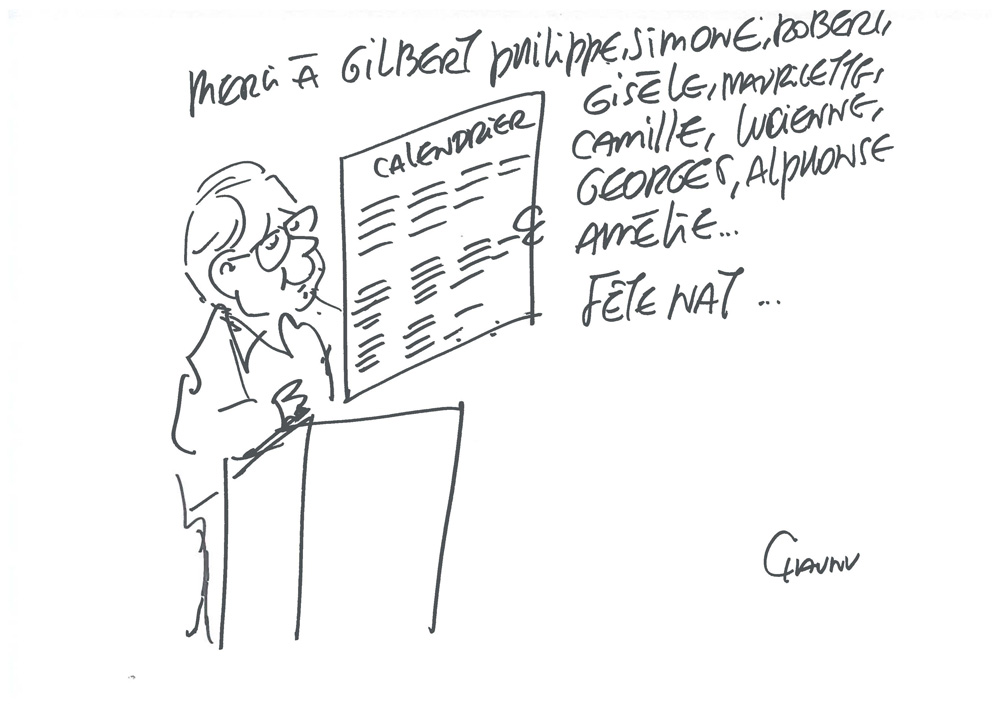 MERCi À GiLBERT PHiLiPPE, SiMONE, ROBERT,
GiSÈLE, MAURiCETTE,
CAMiLLE, LUCiENNE,
GEORGES, ALPHONSE
AMÉLiE...
FÊTE NAT ...
CALENDRiER
CHAUNU